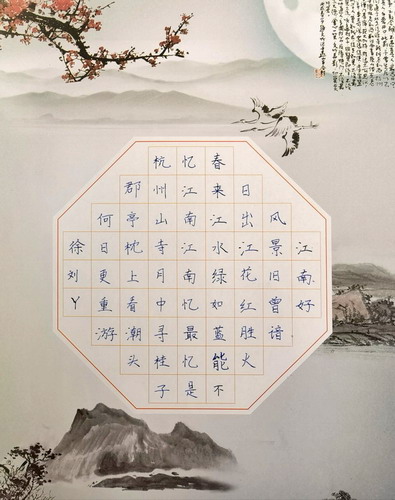 江南好
风景旧曾谙
日出江花红胜火
春来江水绿如蓝能不
忆江南江南忆最忆是
杭州山寺月中寻桂子
郡亭枕上看潮头
何日更重游
徐刘丫